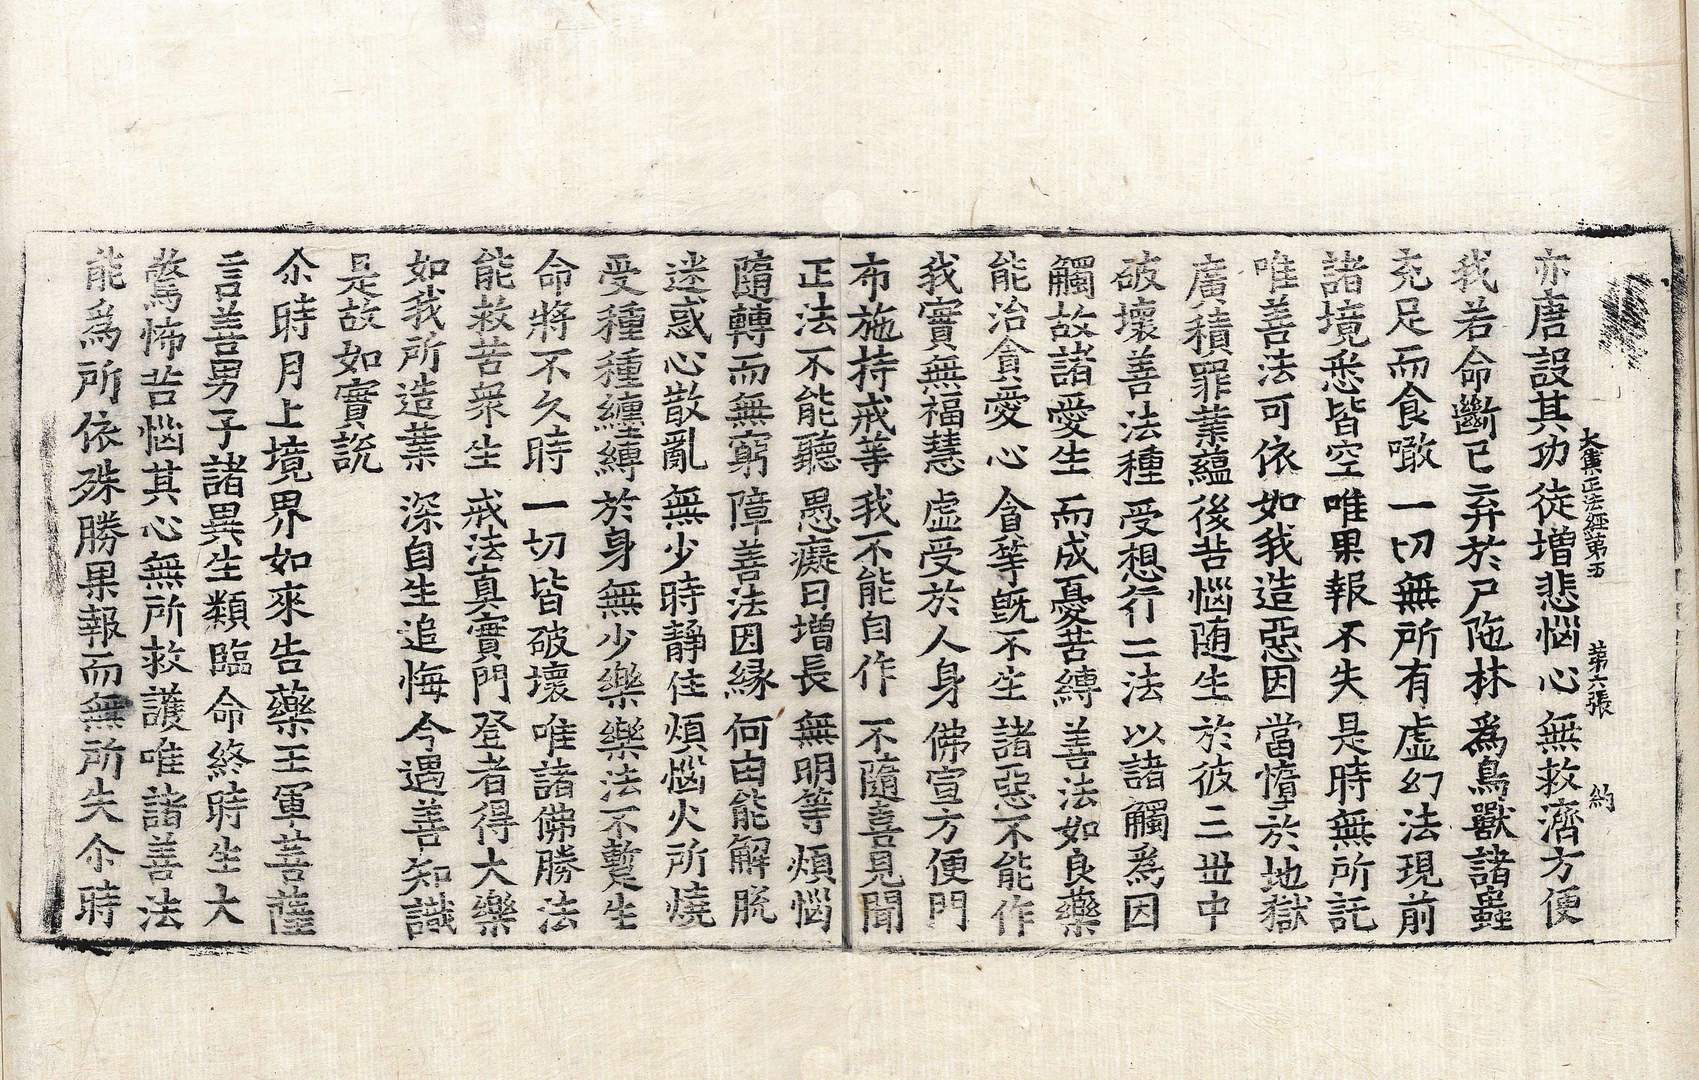 大集正法經第五　第六張　約
亦唐設其功　徒增悲惱心　無救濟方便
我若命斷已　弃於尸陁林　爲鳥獸諸蟲
充足而食噉　一切無所有　虛幻法現前
諸境悉皆空　唯果報不失　是時無所託
唯善法可依　如我造惡因　當墮於地獄
廣積罪業蘊　後苦惱随生　於彼三世中
破壞善法種　受想行二法　以諸觸爲因
觸故諸愛生　而成憂苦縛　善法如良藥
能治貪愛心　貪等旣不生　諸惡不能作
我實無福慧　虛受於人身　佛宣方便門
布施持戒等　我不能自作　不隨喜見聞
正法不能聽　愚癡日增長　無明等煩惱
隨轉而無窮　障善法因縁　何由能解脫
迷惑心散亂　無少時靜住　煩惱火所燒
受種種纏縛　於身無少樂　樂法不暫生
命將不久時　一切皆破壞　唯諸佛勝法
能救苦衆生　戒法真實門　登者得大樂
如我所造業　深自生追悔　今遇善知識
是故如實說
尒時月上境界如來告藥王軍菩薩
言善男子諸異生類臨命終時生大
驚怖苦惱其心無所救護唯諸善法
能爲所依殊勝果報而無所失尒時